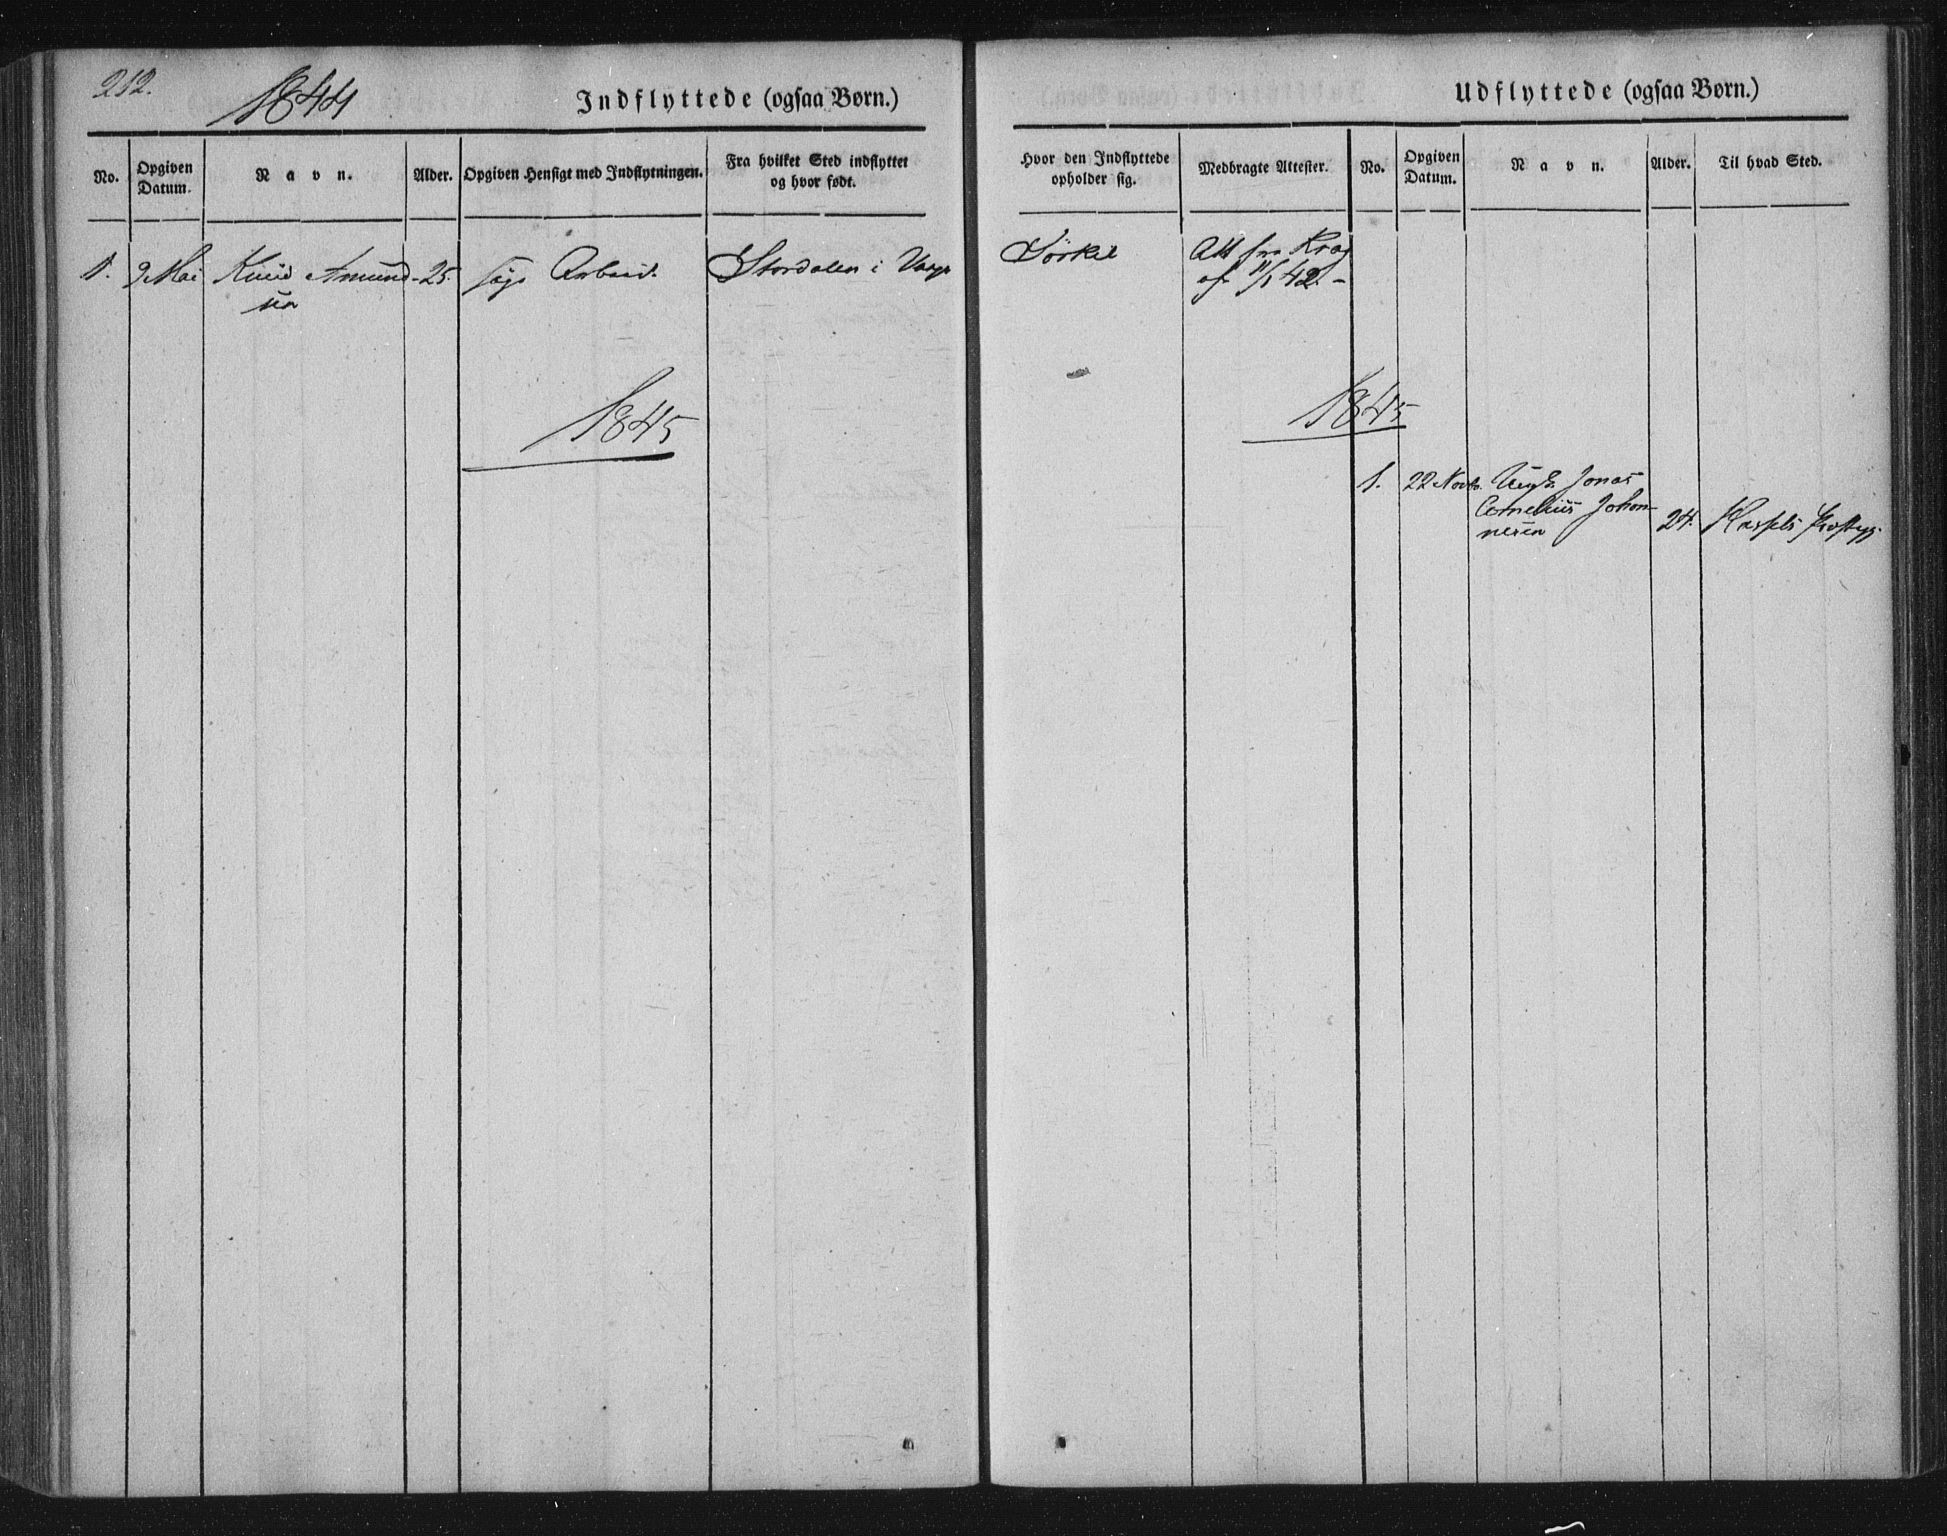 212.
1844
Indflyttede (ogsaa Børn.)
No.
Opgiven Datum.
Navn.
Alder.
Opgiven Hensigt med Indflytningen.
Fra hvilket Sted indflyttet
og hvor født.
1.
9 Mai
Knud Amund-
sen
25.
søge Arbeid.
Stordalen i
1845
Udflyttede (ogsaa Børn.)
Hvor den Indflyttede
opholder sig.
Medbragte Attester.
No.
Opgiven Datum.
Navn.
Alder.
Til hvad Sted.
Att fra
af 42.-
1845
1.
22 Novb.
Jonas
Cornelius Johan-
nesen
24.